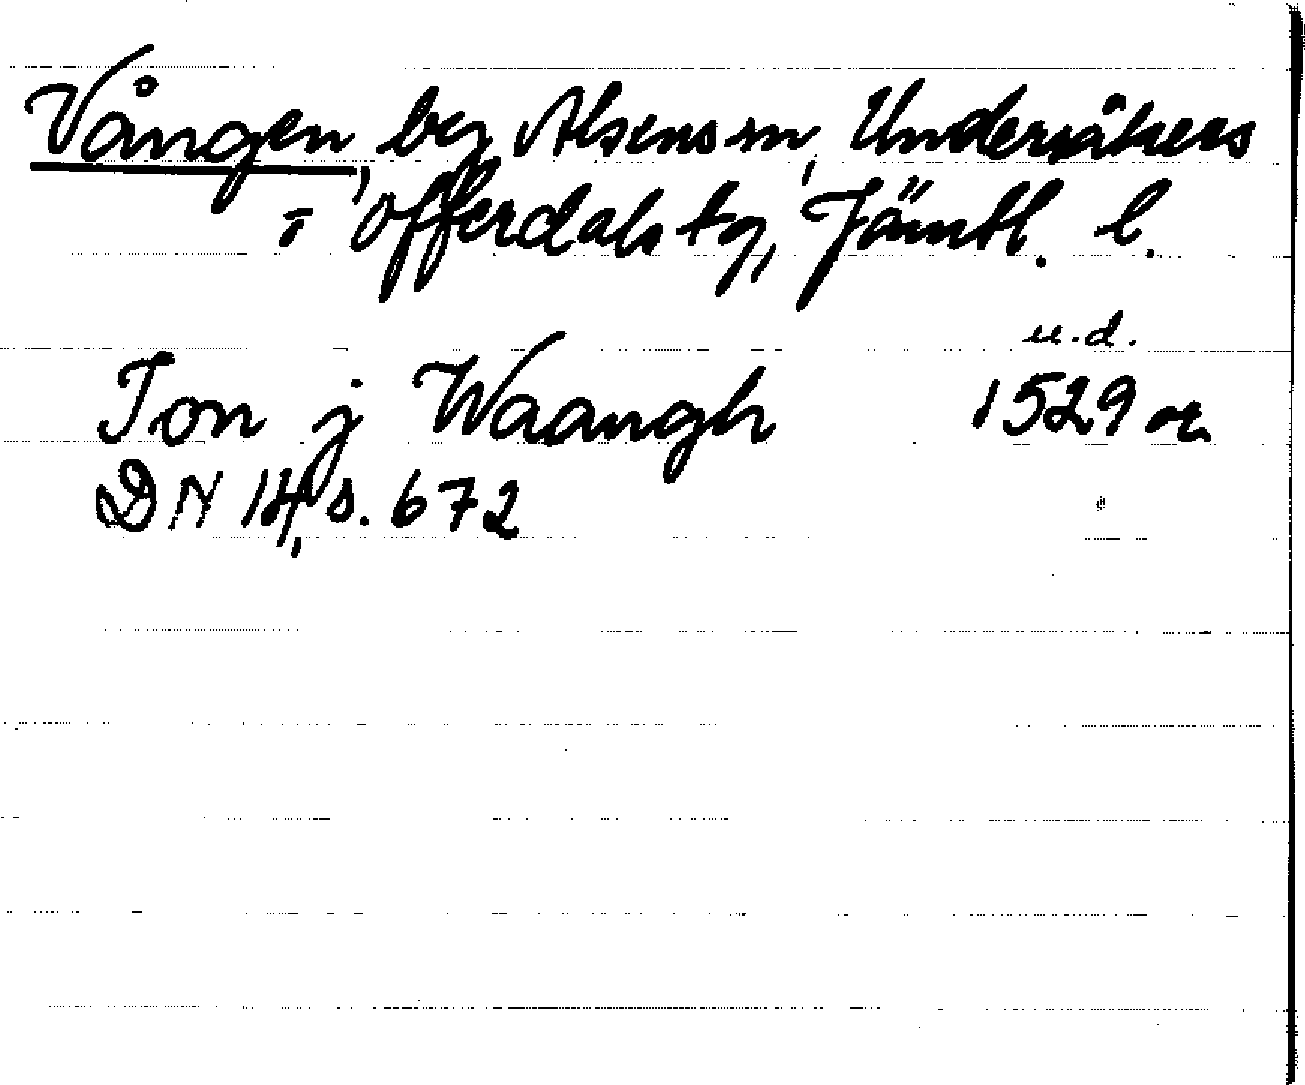 Vången, by Alsens sn, Undersåkers
= Offerdals tg, Jämtl. l.
u.d.
Jon j Waangh 1529 or
DN 14, s. 672